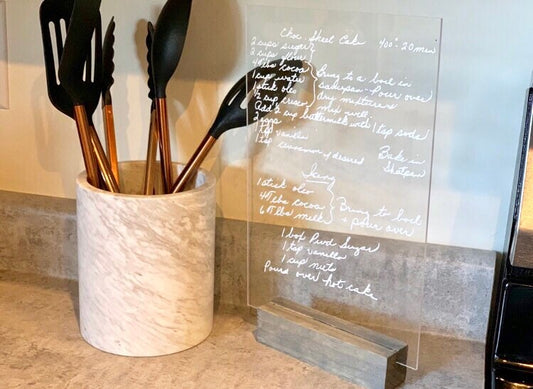 Choc Sheet Cake 400°-20 min
2 cups sugar
2 cups flour
4 Tbs cocoa
1 cup water
1 stick oleo
Bring to a boil in
saucepan - pour over
dry mixture
mix well.
½ cup crisco
Add ½ cup buttermilk with 1 tsp soda
2 eggs
1 tsp vanilla
1 tsp cinnamon if desired
Bake in
Icing
1 stick oleo
4 Tbs cocoa
6 Tbs milk
Bring to boil
+ pour over
1 box Pwd Sugar
1 tsp vanilla
1 cup nuts
Pour over hot cake